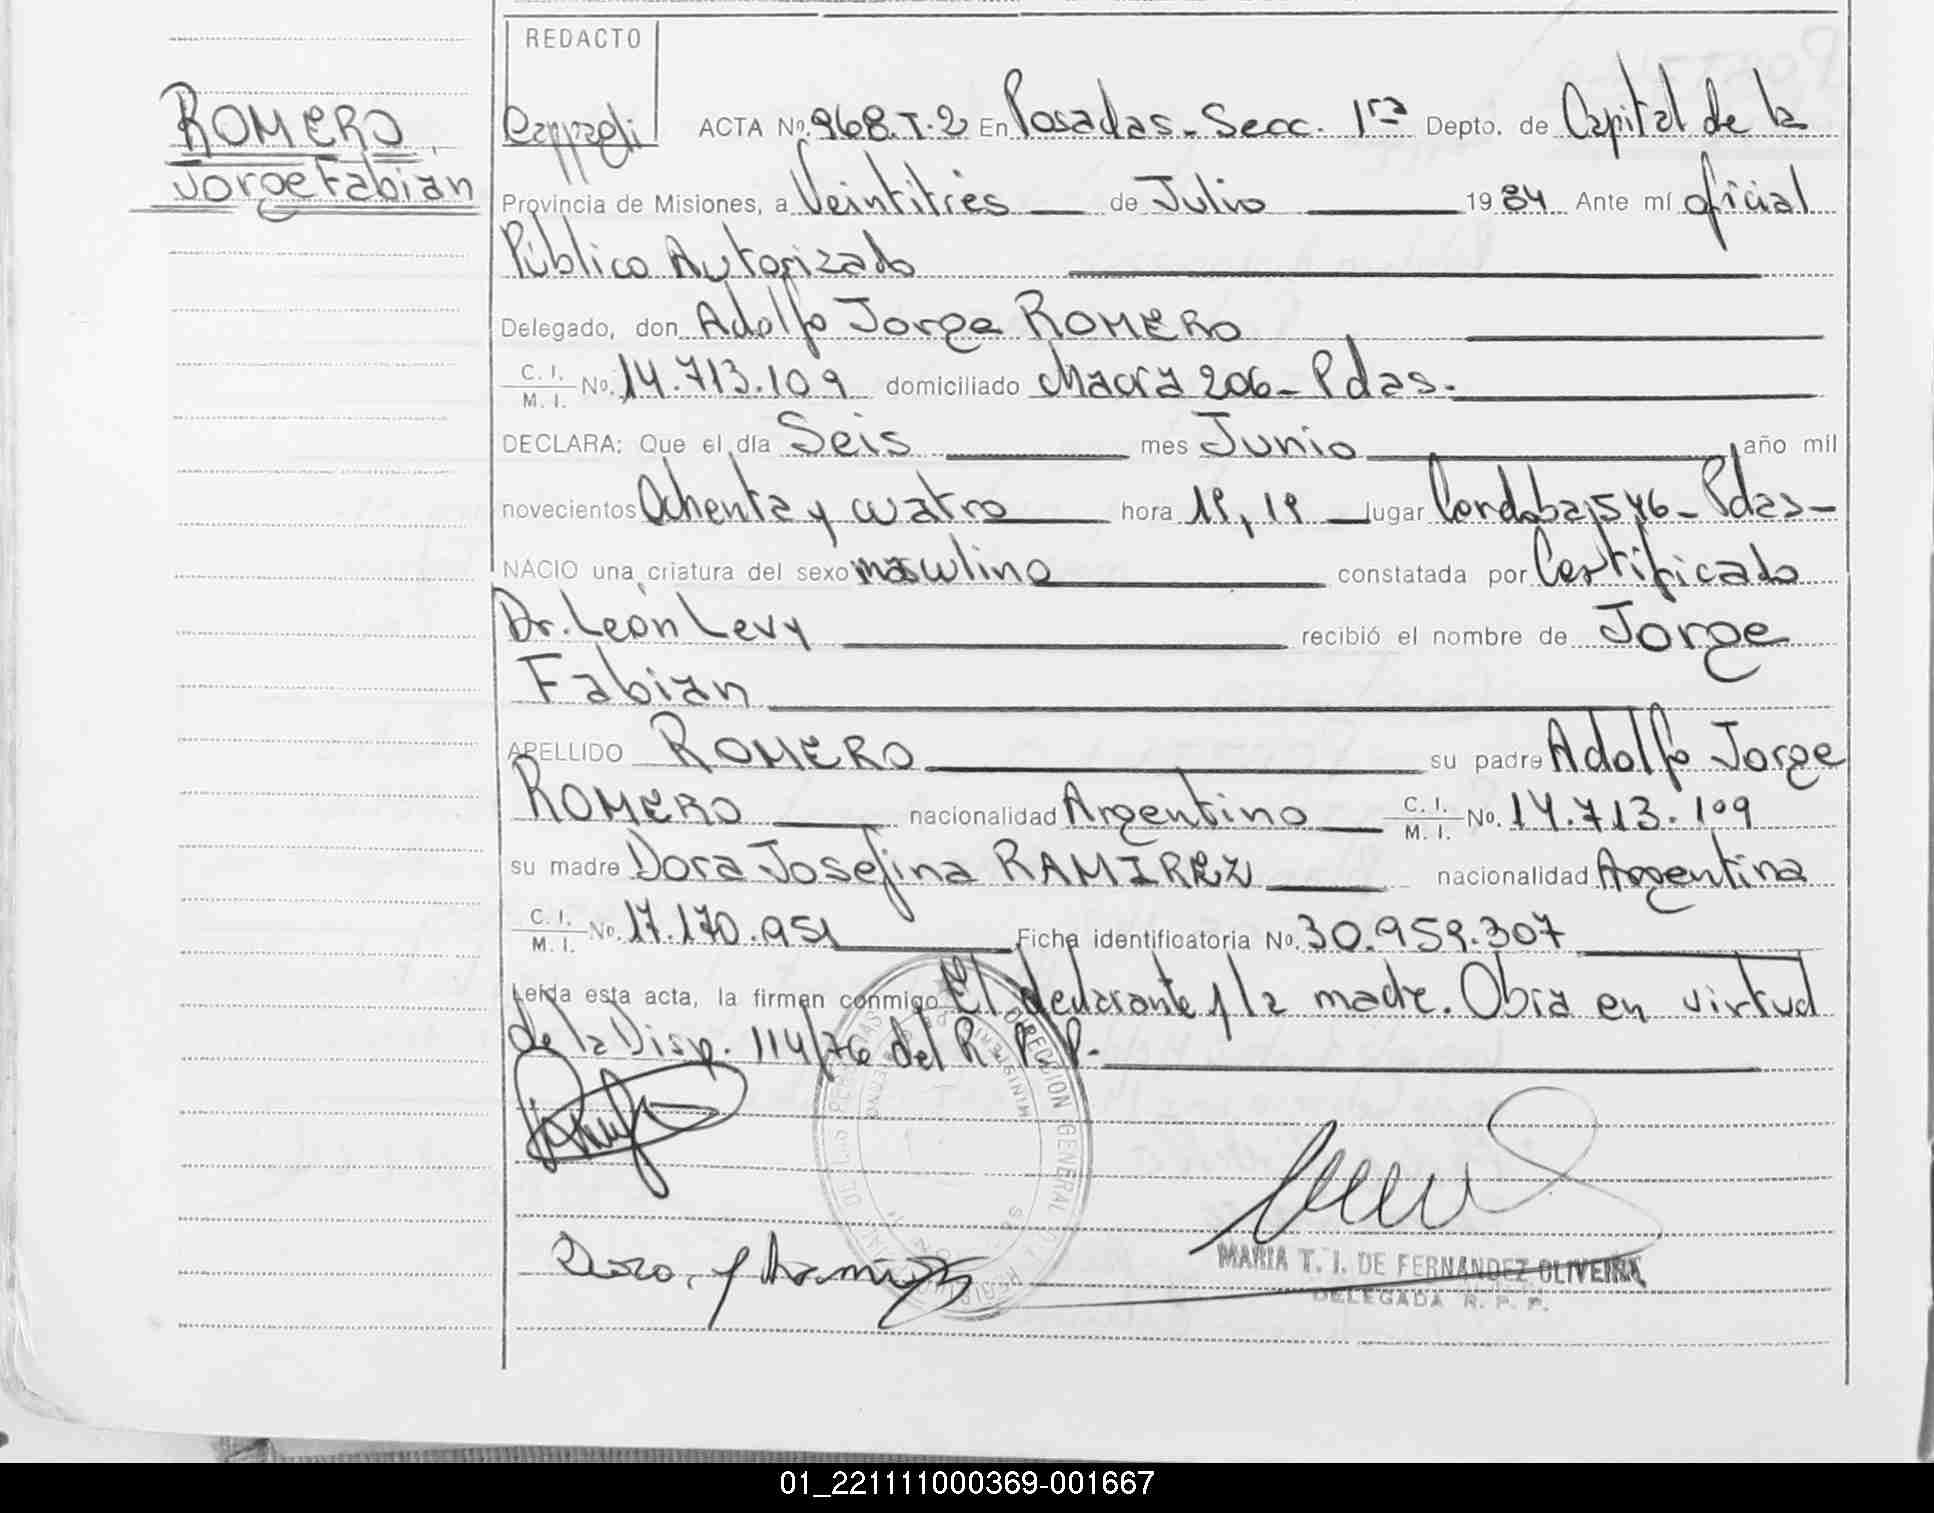 REDACTO
ROMERO
Jorge Fabian
ACTA Nº 968.T.2 En Posadas - Secc. 1ra Depto. de Capital de la
Provincia de Misiones, a Veintitrés de Julio 1984 Ante mí oficial
Público Autorizado
Delegado, don Adolfo Jorge ROMERO
C. I.
M. I. Nº. 14.713.109 domiciliado 206 - Pdas.
DECLARA: Que el día Seis mes Junio año mil
novecientos Ochenta y cuatro hora lugar Cordoba 546 - Pdas -
NACIO una criatura del sexo masculino constatada por Certificado
Dr. León Levy recibió el nombre de Jorge
Fabian
APELLIDO ROMERO su padre Adolfo Jorge
ROMERO nacionalidad Argentino C. I.
M. I. Nº. 14.713.109
su madre Dora Josefina RAMIREZ nacionalidad Argentina
C. I.
M. I. Nº. 17.170.951 Ficha identificatoria Nº. 30.959.307
Leída esta acta, la firman conmigo El declarante y la madre. Obra en virtud
de la Disp. 114/76 del R. P. P.
DIRECCION GENERAL
MARIA T. I. DE FERNANDEZ OLIVEIRA
DELEGADA R. P. P.
01_221111000369-001667